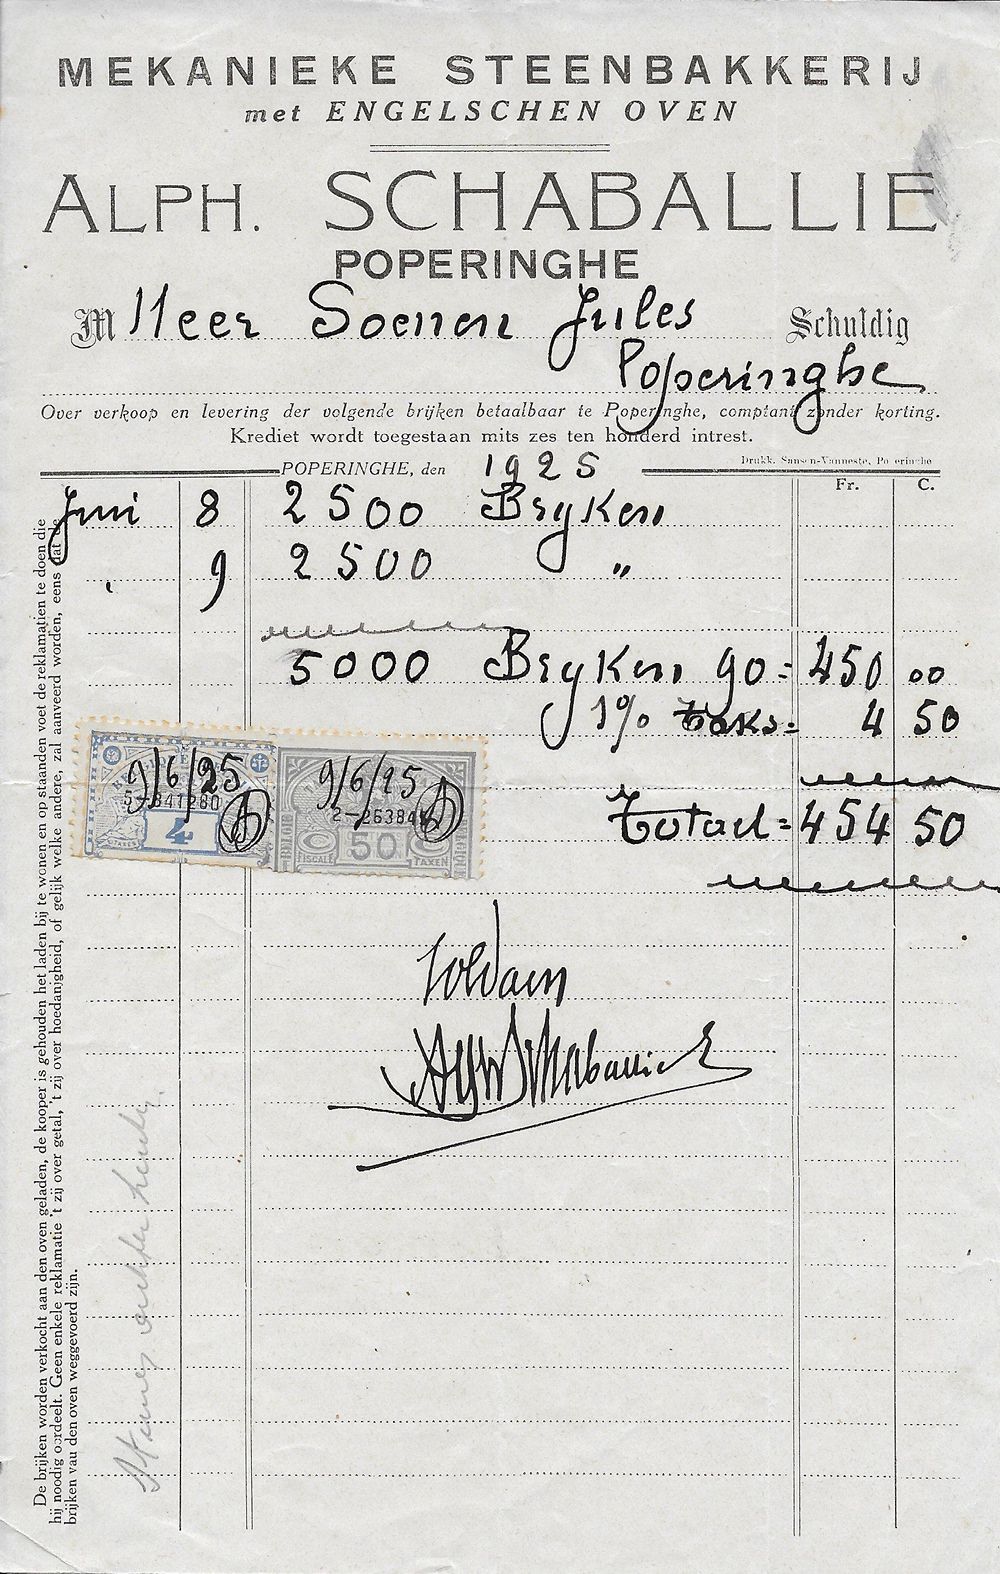 MEKANIEKE STEENBAKKERIJ
met ENGELSCHEN OVEN
ALPH. SCHABALLIE
POPERINGHE
M Heer Soenen Jules Schuldig
Poperinghe
Over verkoop en levering der volgende brijken betaalbaar te Poperinghe, comptant zonder korting.
Krediet wordt toegestaan mits zes ten honderd intrest.
Drukk. Sansen-Vanneste, Poperinghe
POPERINGHE, den 1925
Fr. C.
Juni 8 2500 Bryken
9 2500 "
5000 Bryken 90= 450 00
1% taks= 4 50
Totaal= 454 50
9/6/25
4
9/6/25
50
FISCALE TAXEN
Voldaen
Alph Schaballie
De brijken worden verkocht aan den oven geladen, de kooper is gehouden het laden bij te wonen en op staanden voet de reklamatien te doen die
hij noodig oordeelt. Geen enkele reklamatie 't zij over getal, 't zij over hoedanigheid, of gelijk welke andere, zal aanveerd worden, eens dat de
brijken van den oven weggevoerd zijn.